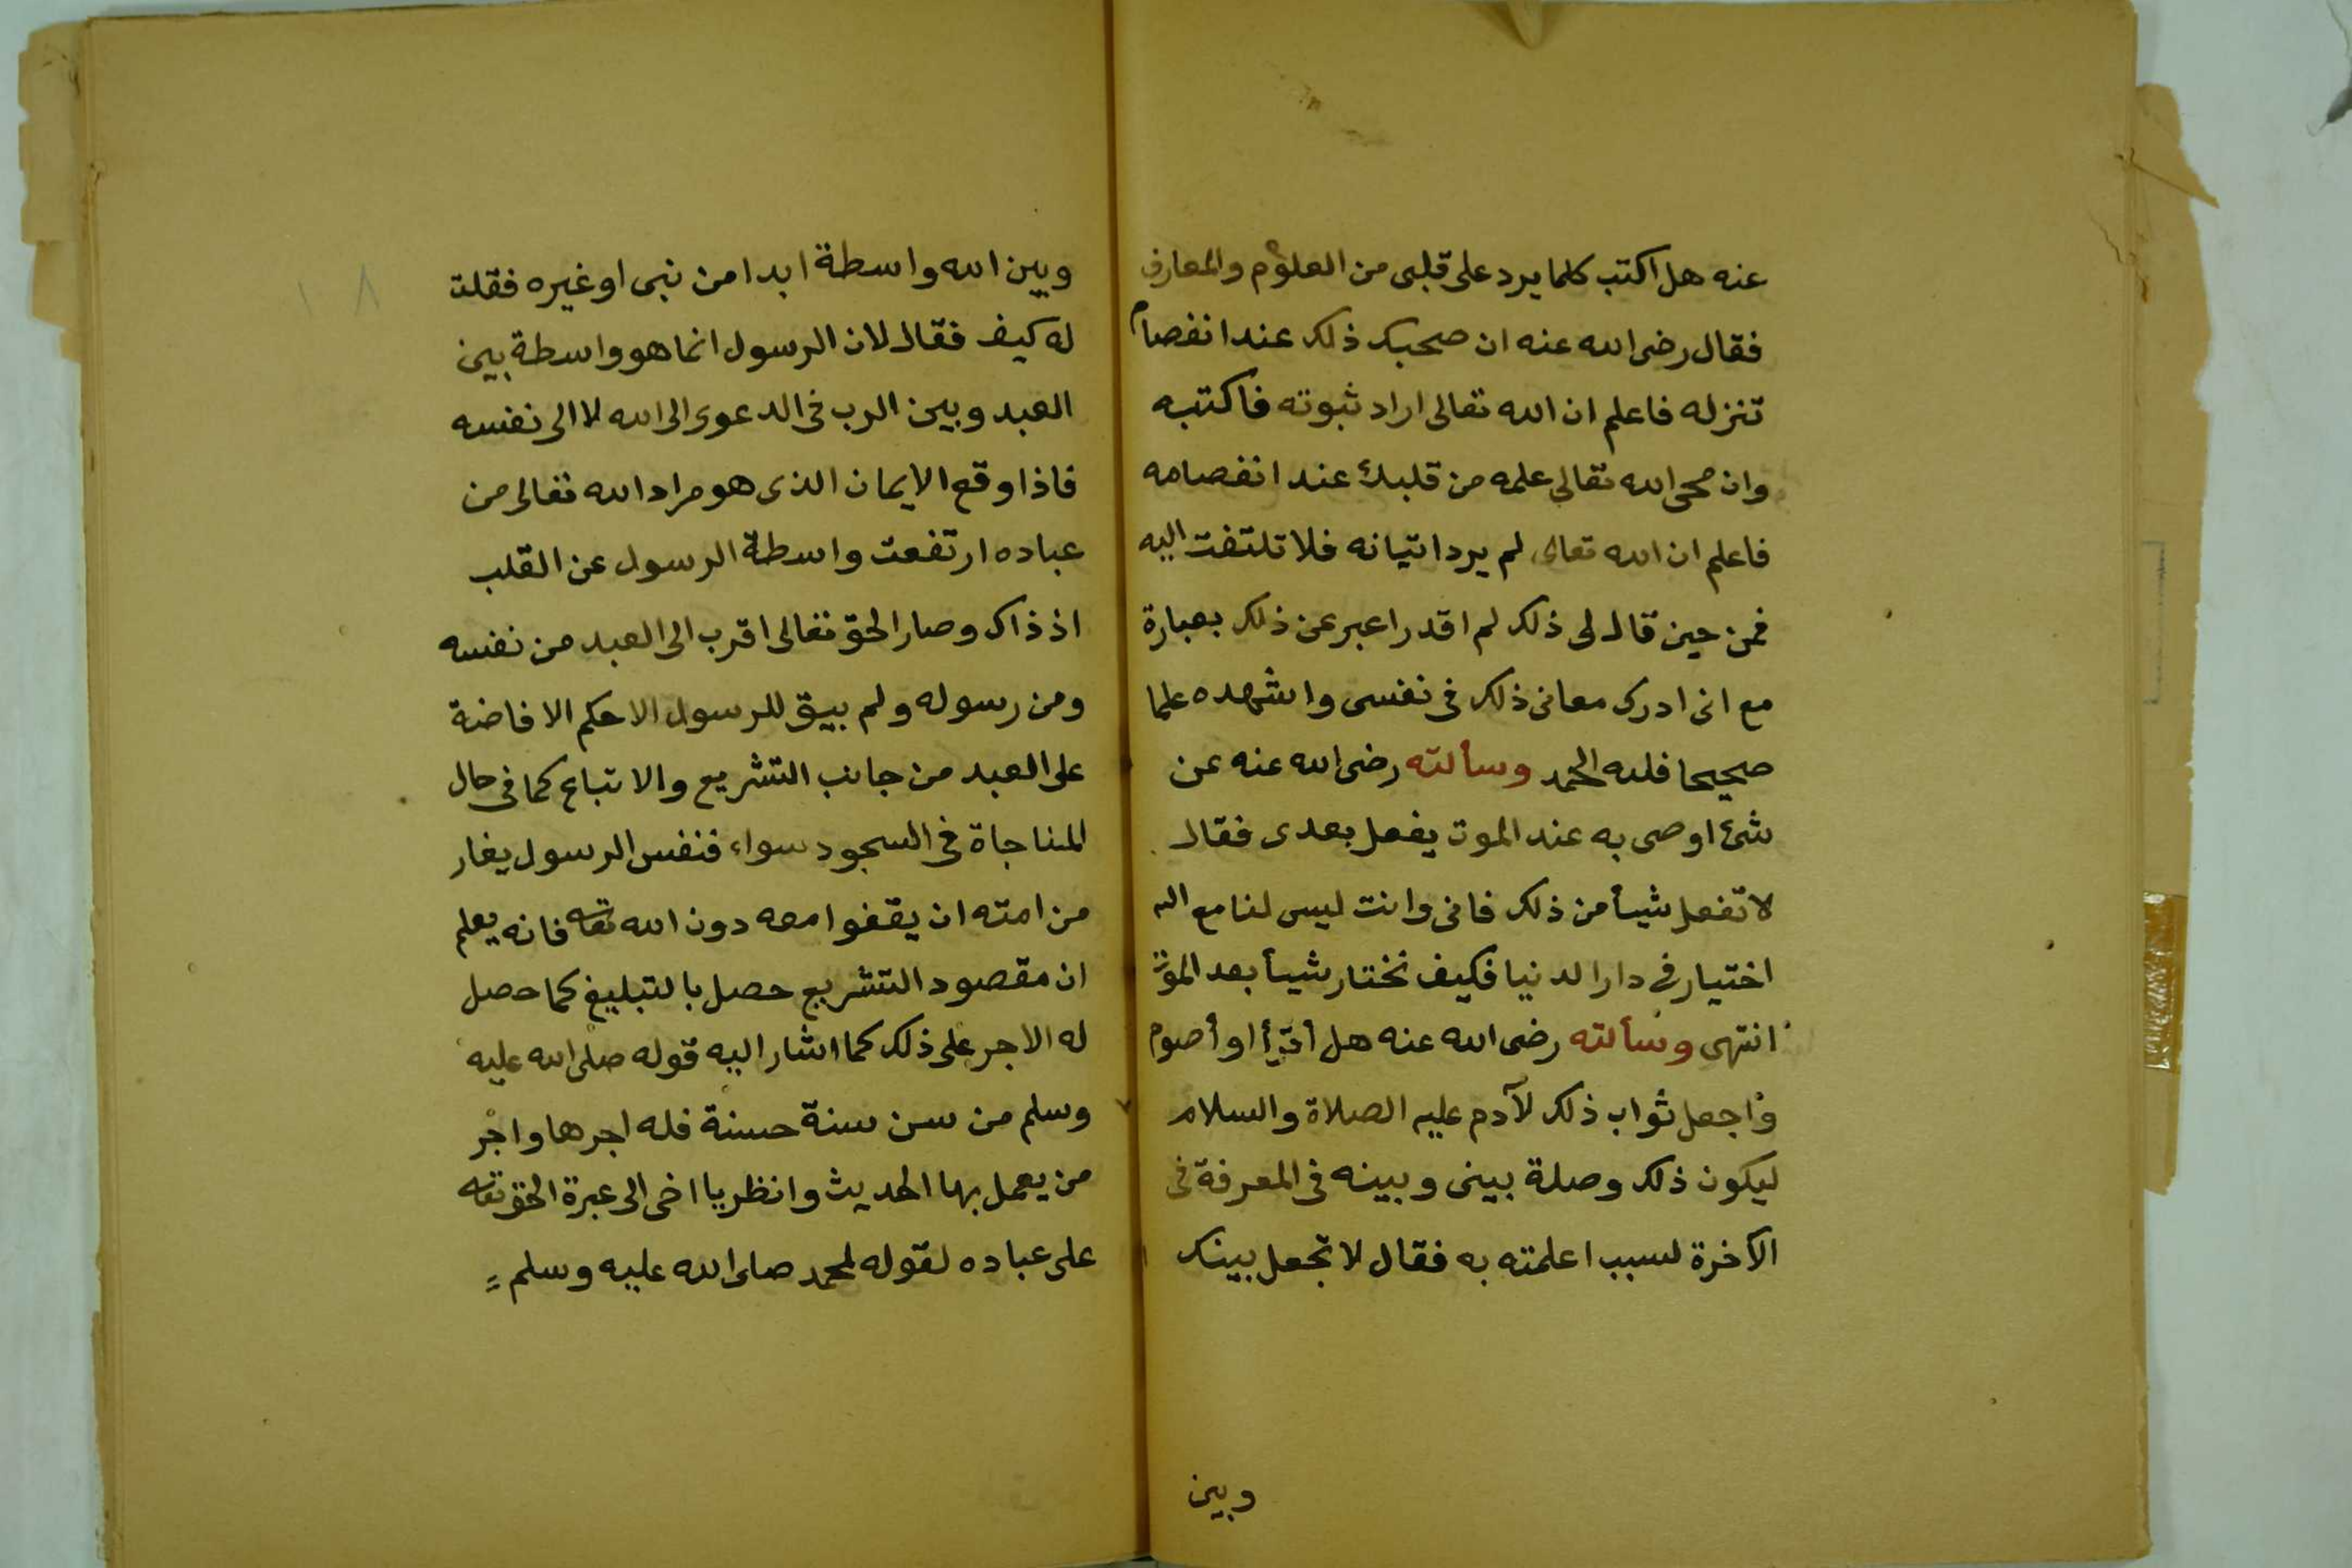 عنه هل اكتب كلما يرد على قلبى من العلوم والمعارف
فقال رضى الله عنه ان صحبك ذلك عند انفصام
تنزله فاعلم ان الله تعالى اراد ثبوته فاكتبه
وان محى الله تعالى علمه من قلبك عند انفصامه
فاعلم ان الله تعالى لم يرد اتيانه فلا تلتفت اليه
فمن حين قال لى ذلك لم اقدر اعبر عن ذلك بعبارة
مع انى ادرك معانى ذلك فى نفسى واشهده علما
صحيحا فلله الحمد وسألته رضى الله عنه عن
شئ اوصى به عند الموت يفعل بعدى فقال
لا تفعل شيأ من ذلك فانى وانت ليس لنا مع الله
اختيار فى دار الدنيا فكيف نختار شيأ بعد الموت
انتهى وسألته رضى الله عنه هل أقرأ او أصوم
واجعل ثواب ذلك لآدم عليه الصلاة والسلام
ليكون ذلك وصلة بينى وبينه فى المعرفة فى
الآخرة لسبب اعلمته به فقال لا تجعل بينك
وبين
وبين الله واسطة ابدا من نبى او غيره فقلت
له كيف فقال لان الرسول انما هو واسطة بين
العبد وبين الرب فى الدعوى الى الله لا الى نفسه
فاذا وقع الايمان الذى هو مراد الله تعالى من
عباده ارتفعت واسطة الرسول عن القلب
اذ ذاك وصار الحق تعالى اقرب الى العبد من نفسه
ومن رسوله ولم يبق للرسول الا حكم الافاضة
على العبد من جانب التشريع والاتباع كما فى حال
المناجاة فى السجود سواء فنفس الرسول يغار
من امته ان يقفوا معه دون الله تعالى فانه يعلم
ان مقصود التشريع حصل بالتبليغ كما حصل
له الاجر على ذلك كما اشار اليه قوله صلى الله عليه
وسلم من سن سنة حسنة فله اجرها واجر
من يعمل بها الحديث وانظر يا اخى الى غيرة الحق تعالى
على عباده لقوله لمحمد صلى الله عليه وسلم
١٨